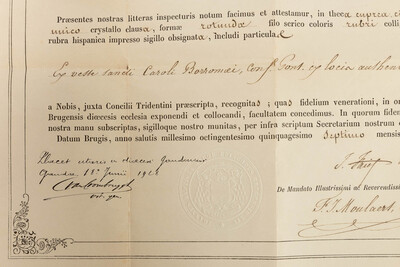 Præsentes nostras litteras inspecturis notum facimus et attestamur, in theca cuprea,
unico crystallo clausa, formæ rotunda filo serico coloris rubri colli
rubra hispanica impresso sigillo obsignata, includi particulae
Ex veste sancti Caroli Borromæi, conf. Pont. ex locis authen
a Nobis, juxta Concilii Tridentini præscripta, recognitas; quas fidelium venerationi, in
Brugensis diœcesis ecclesia exponendi et collocandi, facultatem concedimus. In quorum fidem
nostra manu subscriptas, sigilloque nostro munitas, per infra scriptum Secretarium nostrum
Datum Brugis, anno salutis millesimo octingentesimo quinquagesimo septimo mensis
Placet
Gandavi 11a Junii
vic. gen.
De Mandato Illustrissimi ac Reverendissimi
F. J. Moulaert,